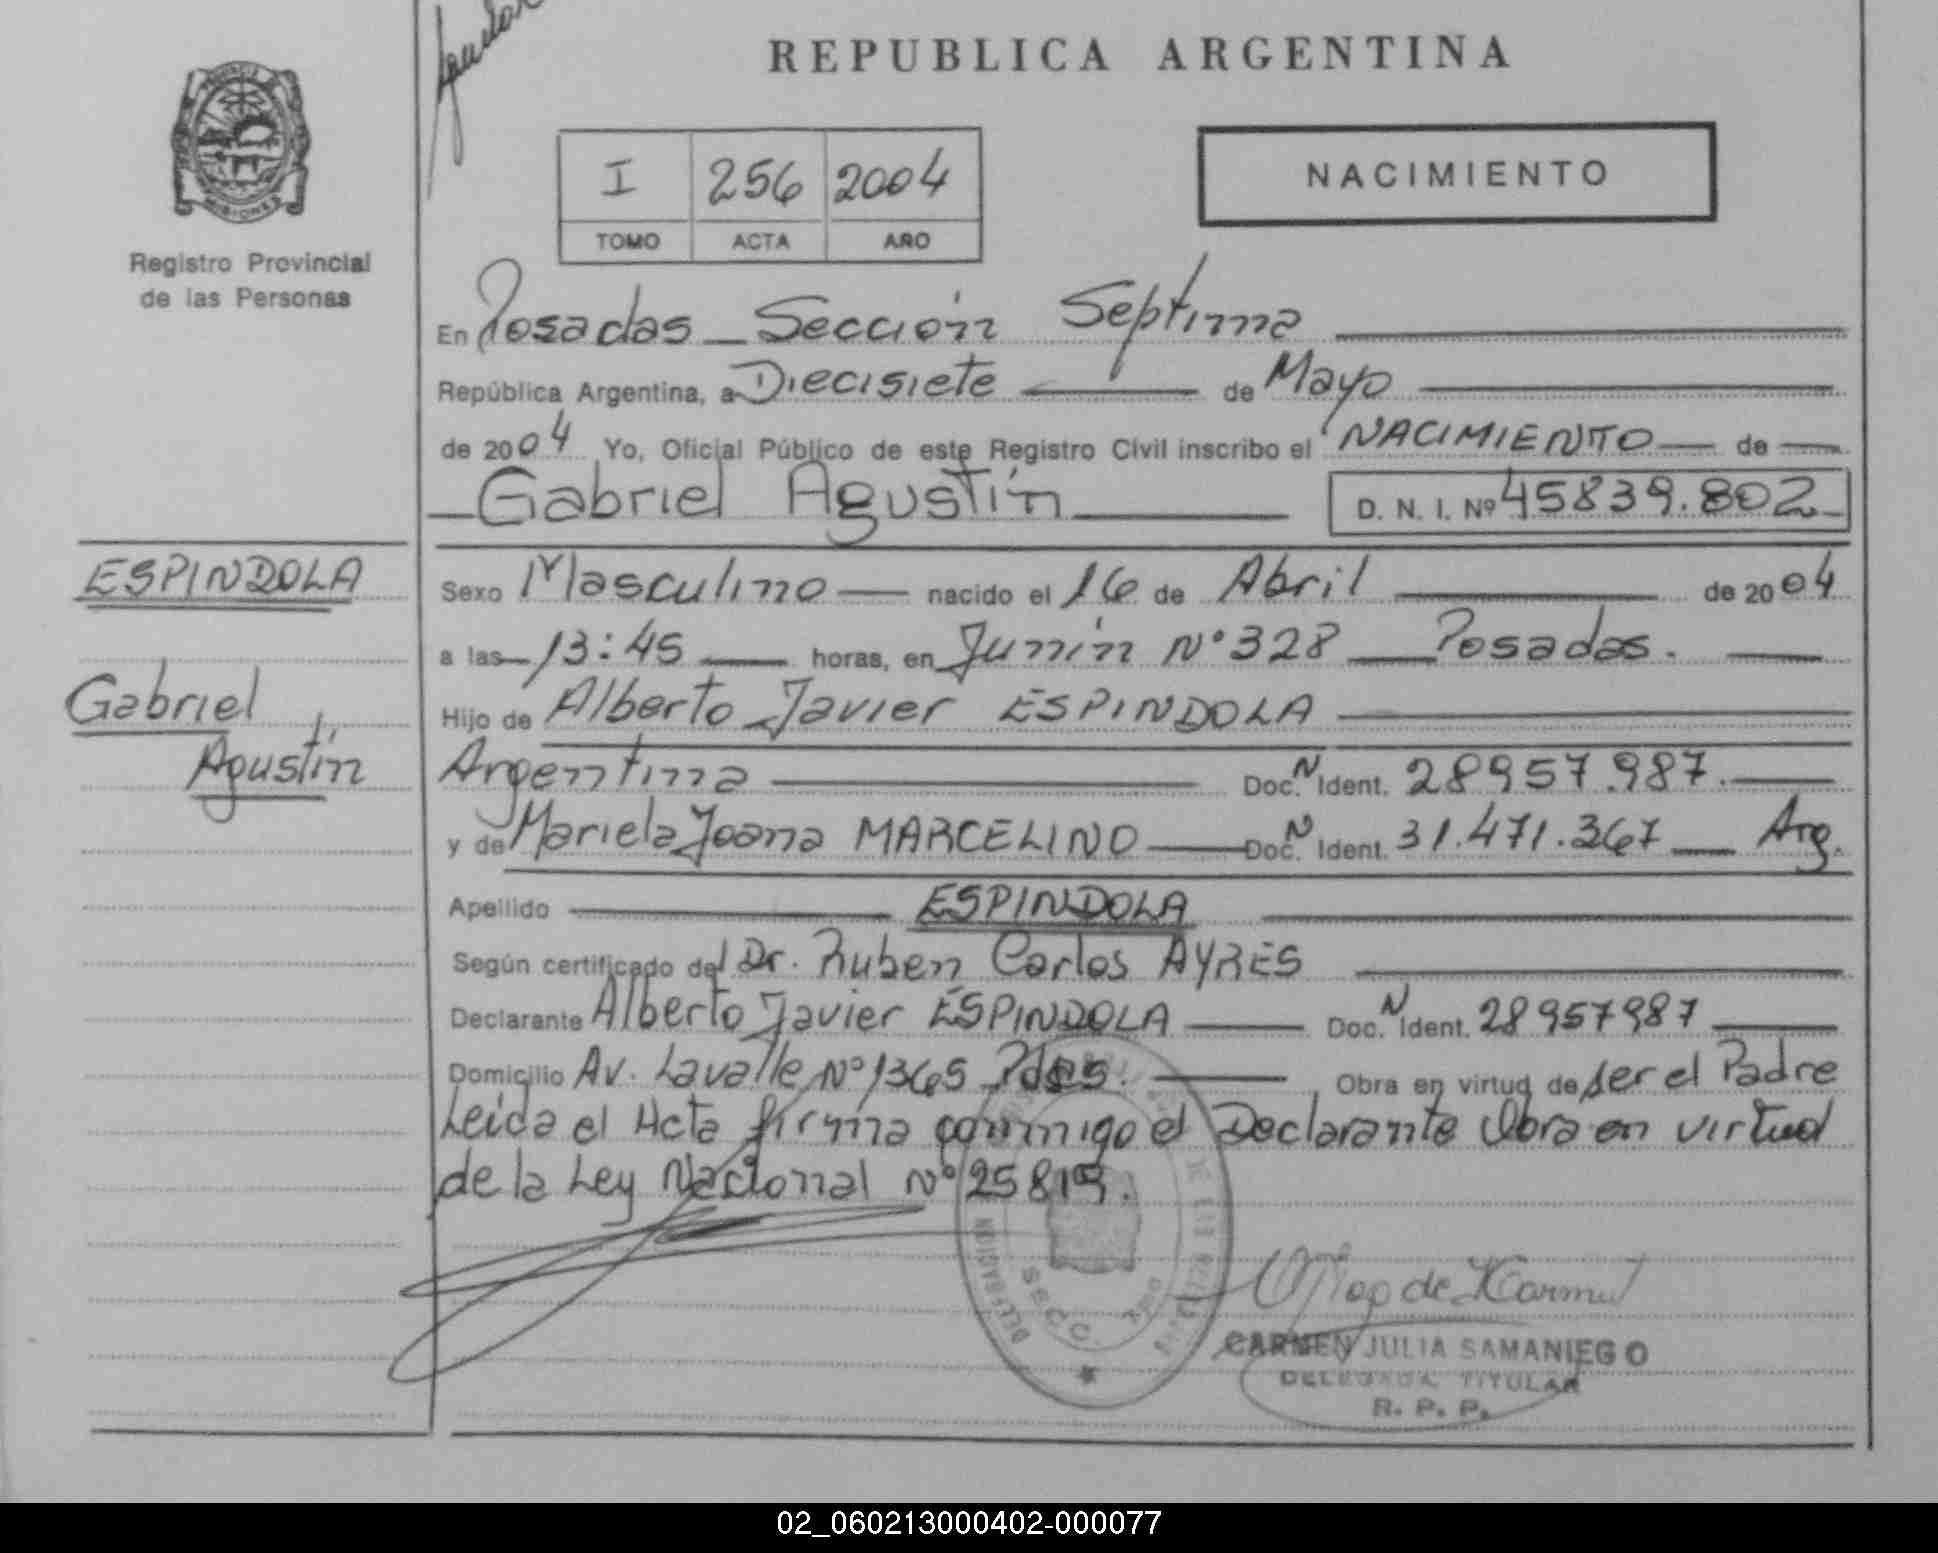 REPUBLICA ARGENTINA
MISIONES
Registro Provincial
de las Personas
I 256 2004
TOMO ACTA AÑO
NACIMIENTO
En Posadas - Sección Septima
República Argentina, a Diecisiete de Mayo
de 2004 Yo, Oficial Público de este Registro Civil inscribo el NACIMIENTO de
Gabriel Agustín D. N. I. Nº 45839.802
ESPINDOLA
Gabriel
Agustín
Sexo Masculino nacido el 16 de Abril de 2004
a las 13:45 horas, en Junín Nº 328 Posadas.
Hijo de Alberto Javier ESPINDOLA
Argentina Doc. N Ident. 28957.987.
y de Mariela Joana MARCELINO Doc. N Ident. 31.471.367 Arg.
Apellido ESPINDOLA
Según certificado del Dr. Ruben Carlos AYRES
Declarante Alberto Javier ESPINDOLA Doc. N Ident. 28957987
Domicilio Av. Lavalle Nº 1365 Pdas. Obra en virtud de ser el Padre
Leida el Acta firma conmigo el Declarante Obra en virtud
de la Ley Nacional Nº 25819.
DELEGACION
CARMEN JULIA SAMANIEGO
DELEGADA TITULAR
R. P. P.
02_060213000402-000077